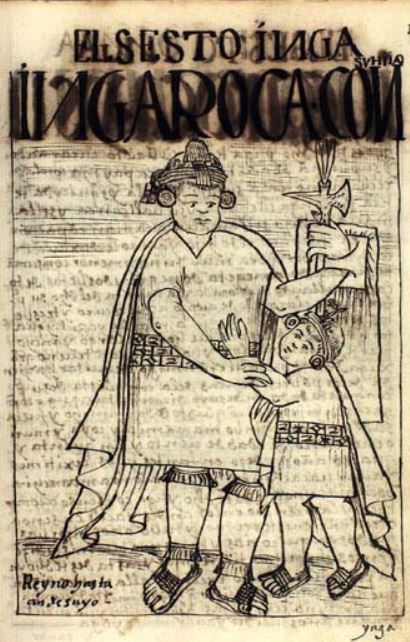 EL SESTO ÍNGA
SV HIJO
ÍNGA ROCA·CON
Reyno hasta
andesuyo
ynga